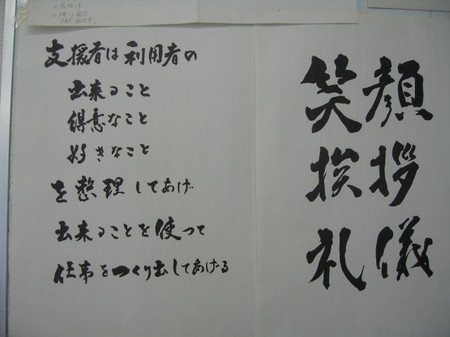 支援者は利用者の
出来ること
得意なこと
好きなこと
を整理してあげ
出来ることを使って
仕事をつくり出してあげる
笑顔
挨拶
礼儀